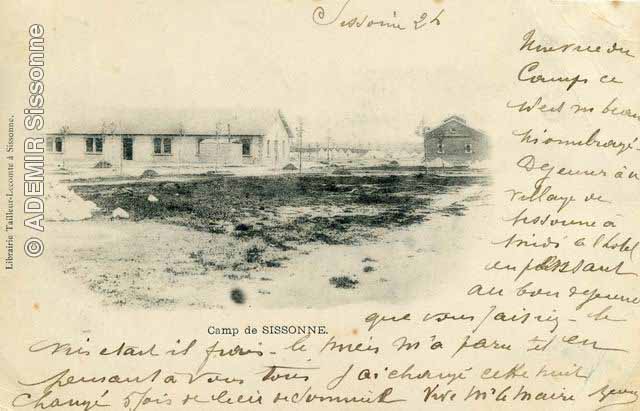 Sissonne 24
Une vue du
Camp ce
n'est ni beau
ni ombragé.
Déjeuner au
village de
Sissonne à
midi à l'hôtel
en pensant
au bon déjeuner
que vous faisiez - le
était il frais - le mien m'a paru et en
pensant à vous tous j'ai changé cette nuit
changé fois de lieu de Vive M. le Maire
Camp de SISSONNE.
Librairie Tailleur-Lecomte à Sissonne.
© ADEMIR Sissonne